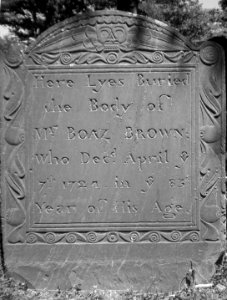 Here Lyes Buried
the Body of
Mr BOAZ BROWN:
Who Decd April ye
7th 1724 in ye 83d
Year of His Age.